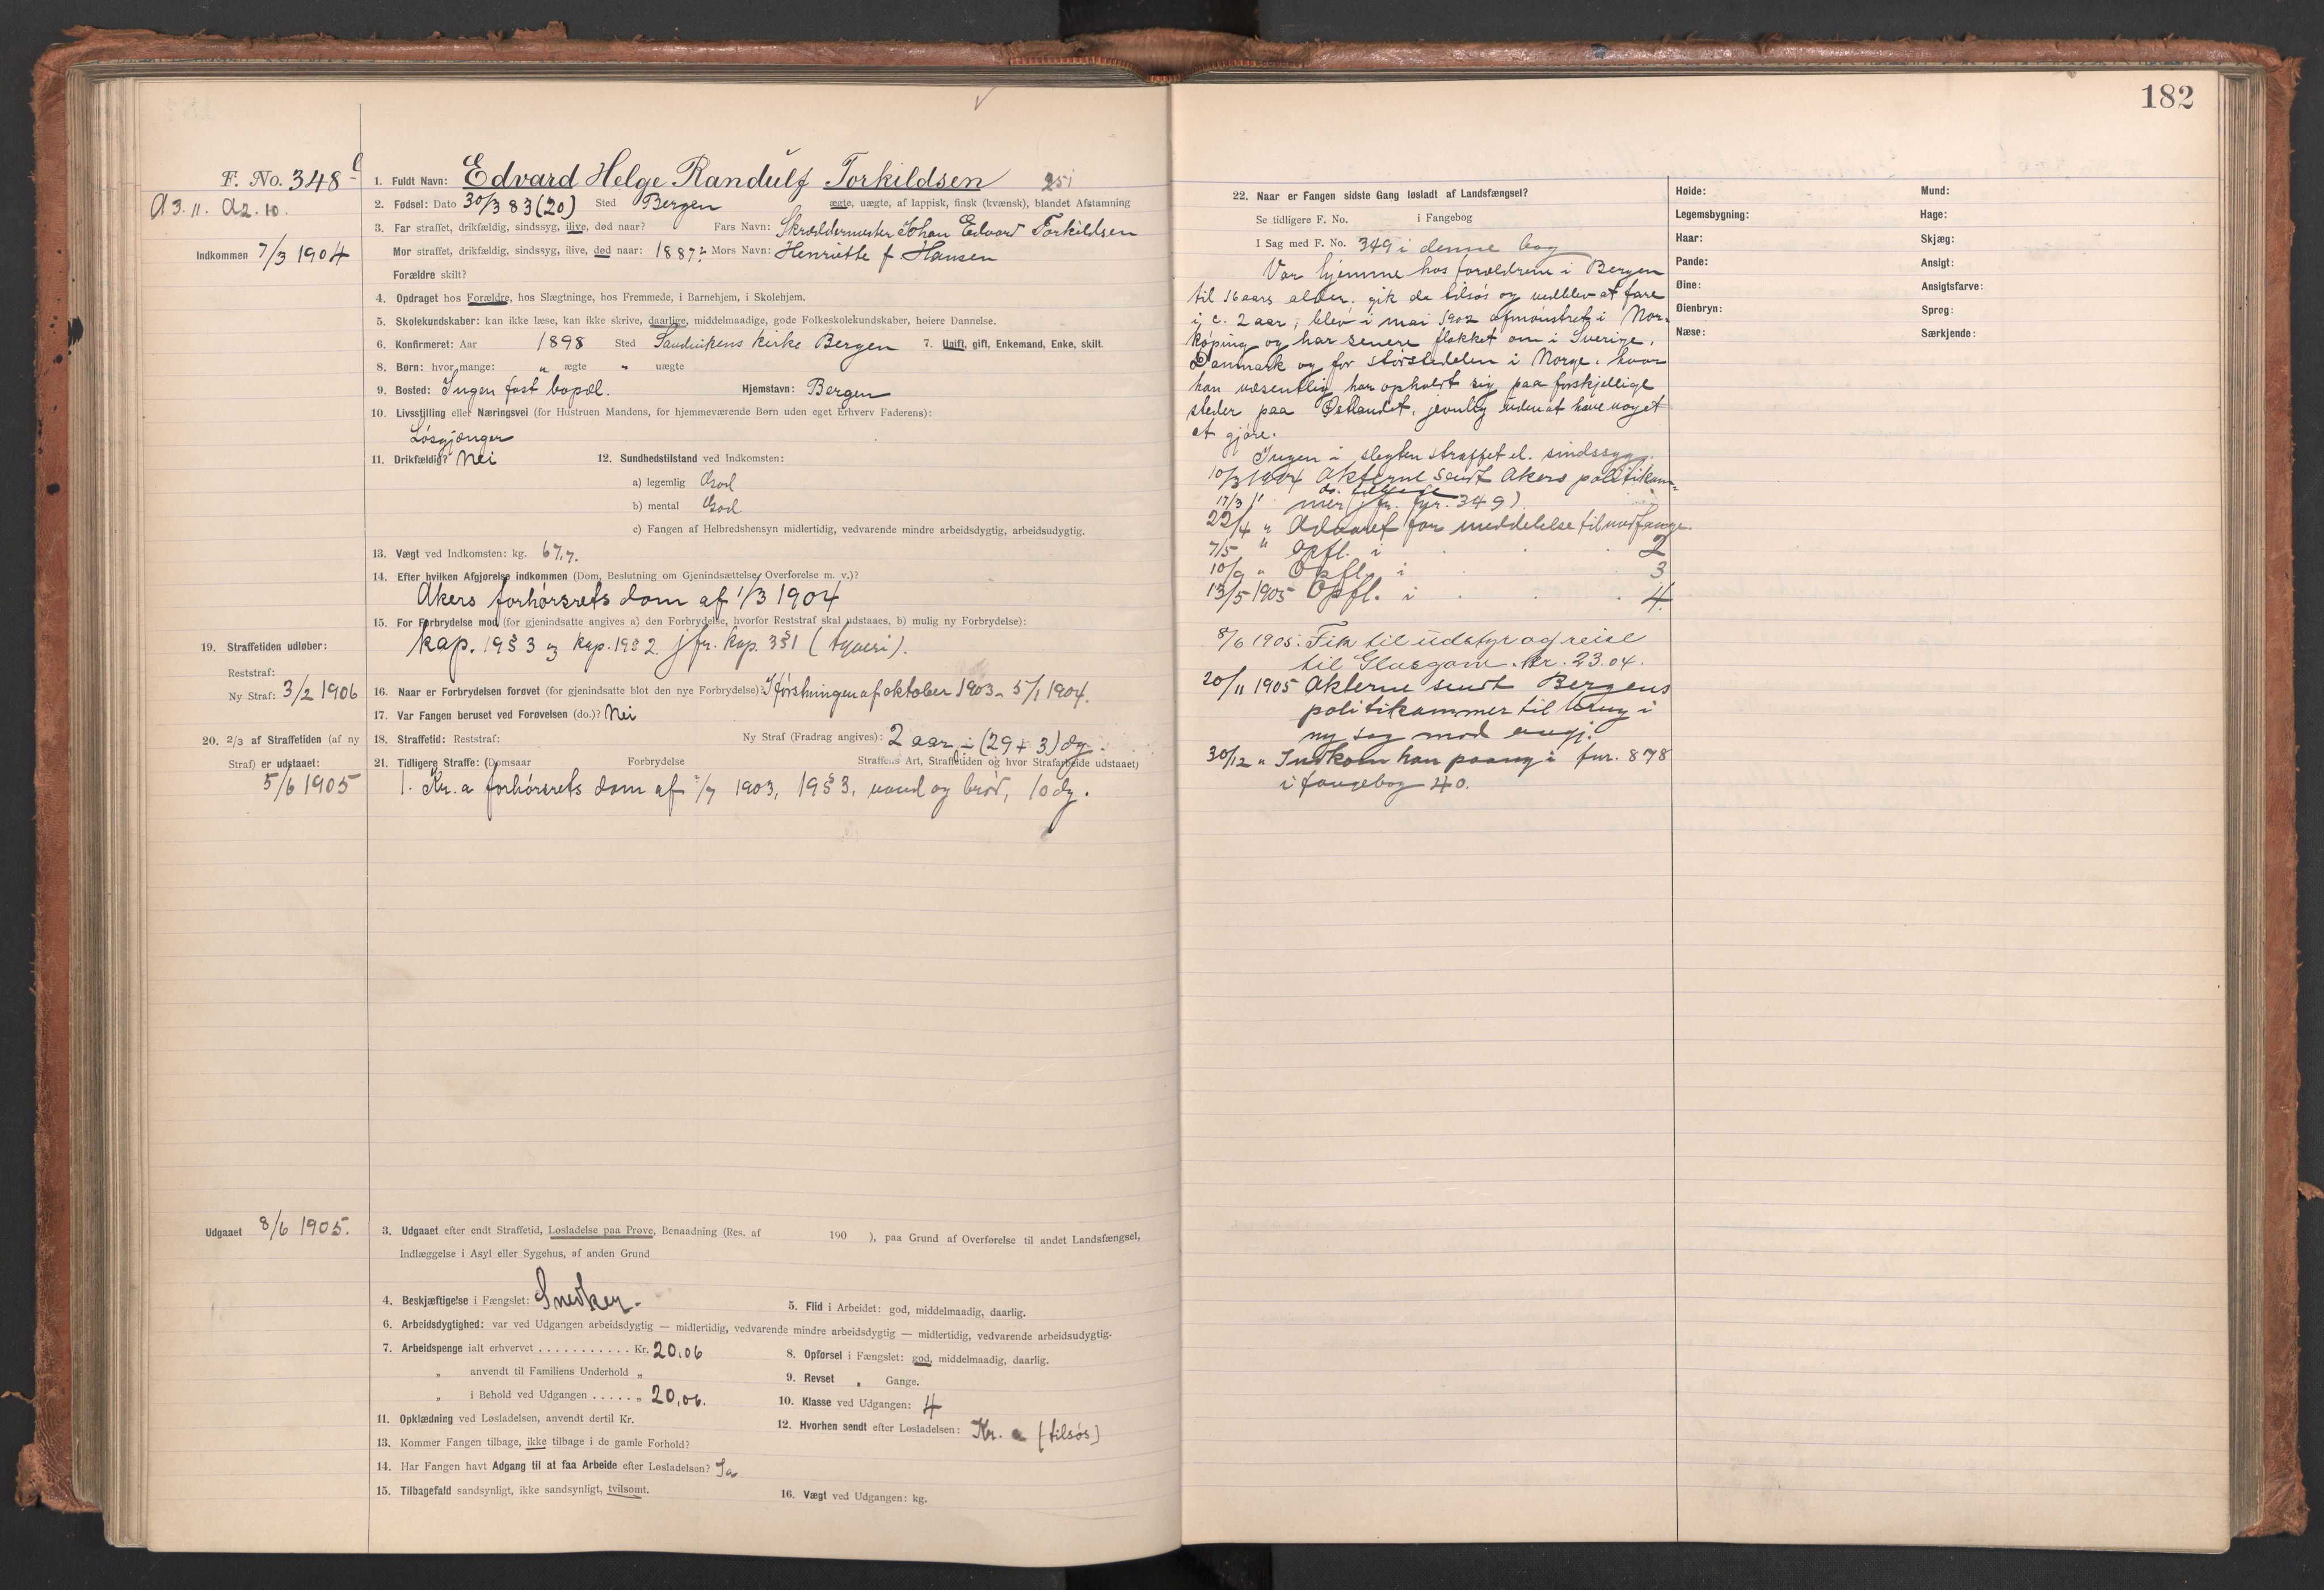 182
F. No. 348
A 3. 11. A 2. 10.
Indkommen 7/3 1904
1. Fuldt Navn: Edvard Helge Randulf Torkildsen 251
2. Fødsel: Dato 30/3 83 (20) Sted Bergen ægte, uægte, af lappisk, finsk (kvænsk), blandet Afstamning
3. Far straffet, drikfældig, sindssyg, ilive, død naar? Fars Navn: Skræddermester Johan Edvard Torkildsen
Mor straffet, drikfældig, sindssyg, ilive, død naar: 1887? Mors Navn: Henriette f Hansen
Forældre skilt?
4. Opdraget hos Forældre, hos Slægtninge, hos Fremmede, i Barnehjem, i Skolehjem.
5. Skolekundskaber: kan ikke læse, kan ikke skrive, daarlige, middelmaadige, gode Folkeskolekundskaber, høiere Dannelse.
6. Konfirmeret: Aar 1898 Sted Sandvikens kirke Bergen 7. Ugift, gift, Enkemand, Enke, skilt.
8. Børn: hvor mange: " ægte " uægte
9. Bosted: Ingen fast bopæl. Hjemstavn: Bergen
10. Livsstilling eller Næringsvei (for Hustruen Mandens, for hjemmeværende Børn uden eget Erhverv Faderens):
Løsgjænger
11. Drikfældig? Nei 12. Sundhedstilstand ved Indkomsten:
a) legemlig God
b) mental God
c) Fangen af Helbredshensyn midlertidig, vedvarende mindre arbeidsdygtig, arbeidsudygtig.
13. Vægt ved Indkomsten: kg. 67,7.
14. Efter hvilken Afgjørelse indkommen (Dom, Beslutning om Gjenindsættelse, Overførelse m. v.)?
Akers forhørsrets dom af 1/3 1904
15. For Forbrydelse mod (for gjenindsatte angives a) den Forbrydelse, hvorfor Reststraf skal udstaaes, b) mulig ny Forbrydelse):
Kap. 19 § 3 og kap. 19 § 2 jfr. kap. 3 § 1 (tyveri).
19. Straffetiden udløber:
Reststraf:
Ny Straf: 3/2 1906
16. Naar er Forbrydelsen forøvet (for gjenindsatte blot den nye Forbrydelse)? I førstningen af oktober 1903 - 5/1 1904.
17. Var Fangen beruset ved Forøvelsen (do.)? Nei
20. 2/3 af Straffetiden (af ny
Straf) er udstaaet:
5/6 1905
18. Straffetid: Reststraf: Ny Straf (Fradrag angives): 2 aar ÷ (29 + 3) dg.
21. Tidligere Straffe: (Domsaar Forbrydelse Straffens Art, Straffetiden og hvor Strafarbeide udstaaet)
1. Kr.a forhørsrets dom af 2/7 1903, 19 § 3, vand og brød, 10 dg.
Udgaaet 8/6 1905.
3. Udgaaet efter endt Straffetid, Løsladelse paa Prøve, Benaadning (Res. af 190 ), paa Grund af Overførelse til andet Landsfængsel,
Indlæggelse i Asyl eller Sygehus, af anden Grund
4. Beskjæftigelse i Fængslet: Snedker. 5. Flid i Arbeidet: god, middelmaadig, daarlig.
6. Arbeidsdygtighed: var ved Udgangen arbeidsdygtig — midlertidig, vedvarende mindre arbeidsdygtig — midlertidig, vedvarende arbeidsudygtig.
7. Arbeidspenge ialt erhvervet . . . . . . . . . . . Kr. 20,06 8. Opførsel i Fængslet: god, middelmaadig, daarlig.
" anvendt til Familiens Underhold " 9. Revset " Gange.
" i Behold ved Udgangen . . . . . " 20,06. 10. Klasse ved Udgangen: 4
11. Opklædning ved Løsladelsen, anvendt dertil Kr. 12. Hvorhen sendt efter Løsladelsen: Kr. a (tilsøs)
13. Kommer Fangen tilbage, ikke tilbage i de gamle Forhold?
14. Har Fangen havt Adgang til at faa Arbeide efter Løsladelsen? Ja
15. Tilbagefald sandsynligt, ikke sandsynligt, tvilsomt. 16. Vægt ved Udgangen: kg.
22. Naar er Fangen sidste Gang løsladt af Landsfængsel?
Se tidligere F. No. i Fangebog
I Sag med F. No. 349 i denne bog
Var hjemme hos forældrene i Bergen
til 16 aars alder. gik da tilsøs og vedblev at fare
i c. 2 aar; blev i mai 1902 afmønstret i Nor-
køping og har senere flakket om i Sverige,
Danmark og for størstedelen i Norge, hvor
han væsentlig har opholdt sig paa forskjellige
steder paa Østlandet, jevnlig uden at have noget
at gjøre.
Ingen i slegten straffet el. sindssyge.
10/3 1904 Akterne sendt Akers politikam-
17/3 " mer (jfr. fgr. 349)
22/4 " Advaret for meddelelse til medfange.
7/5 " Opfl. i . . . 2
10/9 " Opfl. i . . . 3
13/5 1905 Opfl. i . . . 4.
8/6 1905: Fik til udstyr og reise
til Glasgow. Kr. 23.04.
20/11 1905 Akterne sendt Bergens
politikammer til brug i
ny sag mod angj.
30/12 " Indkom han paany i fnr. 878
i fangebog 40.
Høide:
Legemsbygning:
Haar:
Pande:
Øine:
Øienbryn:
Næse:
Mund:
Hage:
Skjæg:
Ansigt:
Ansigtsfarve:
Sprog:
Særkjende: